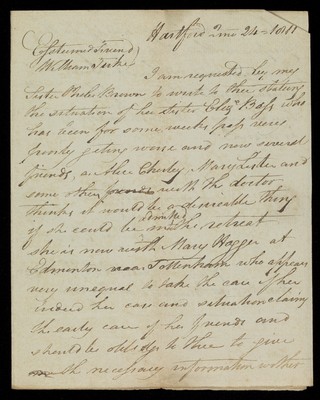 Hartford 2mo 24 - 1811
Esteemed Friend
William Tuke,
I am requested by my
Sister Brown to write to thee stating
the situation of her sister Elizth Bass who
has been for some weeks past
getting worse and now several
friends, Mary Lister and
some other with the doctor
thinks it would be a desireable thing
if she could be admitted in the retreat
she is now with Mary Hagger at
Edmonton near Tottenham who appears
very unequal to take the care of her
indeed her case and situation claims
the early care of her friends and
should be obliged to thee to give
the necessary information whether